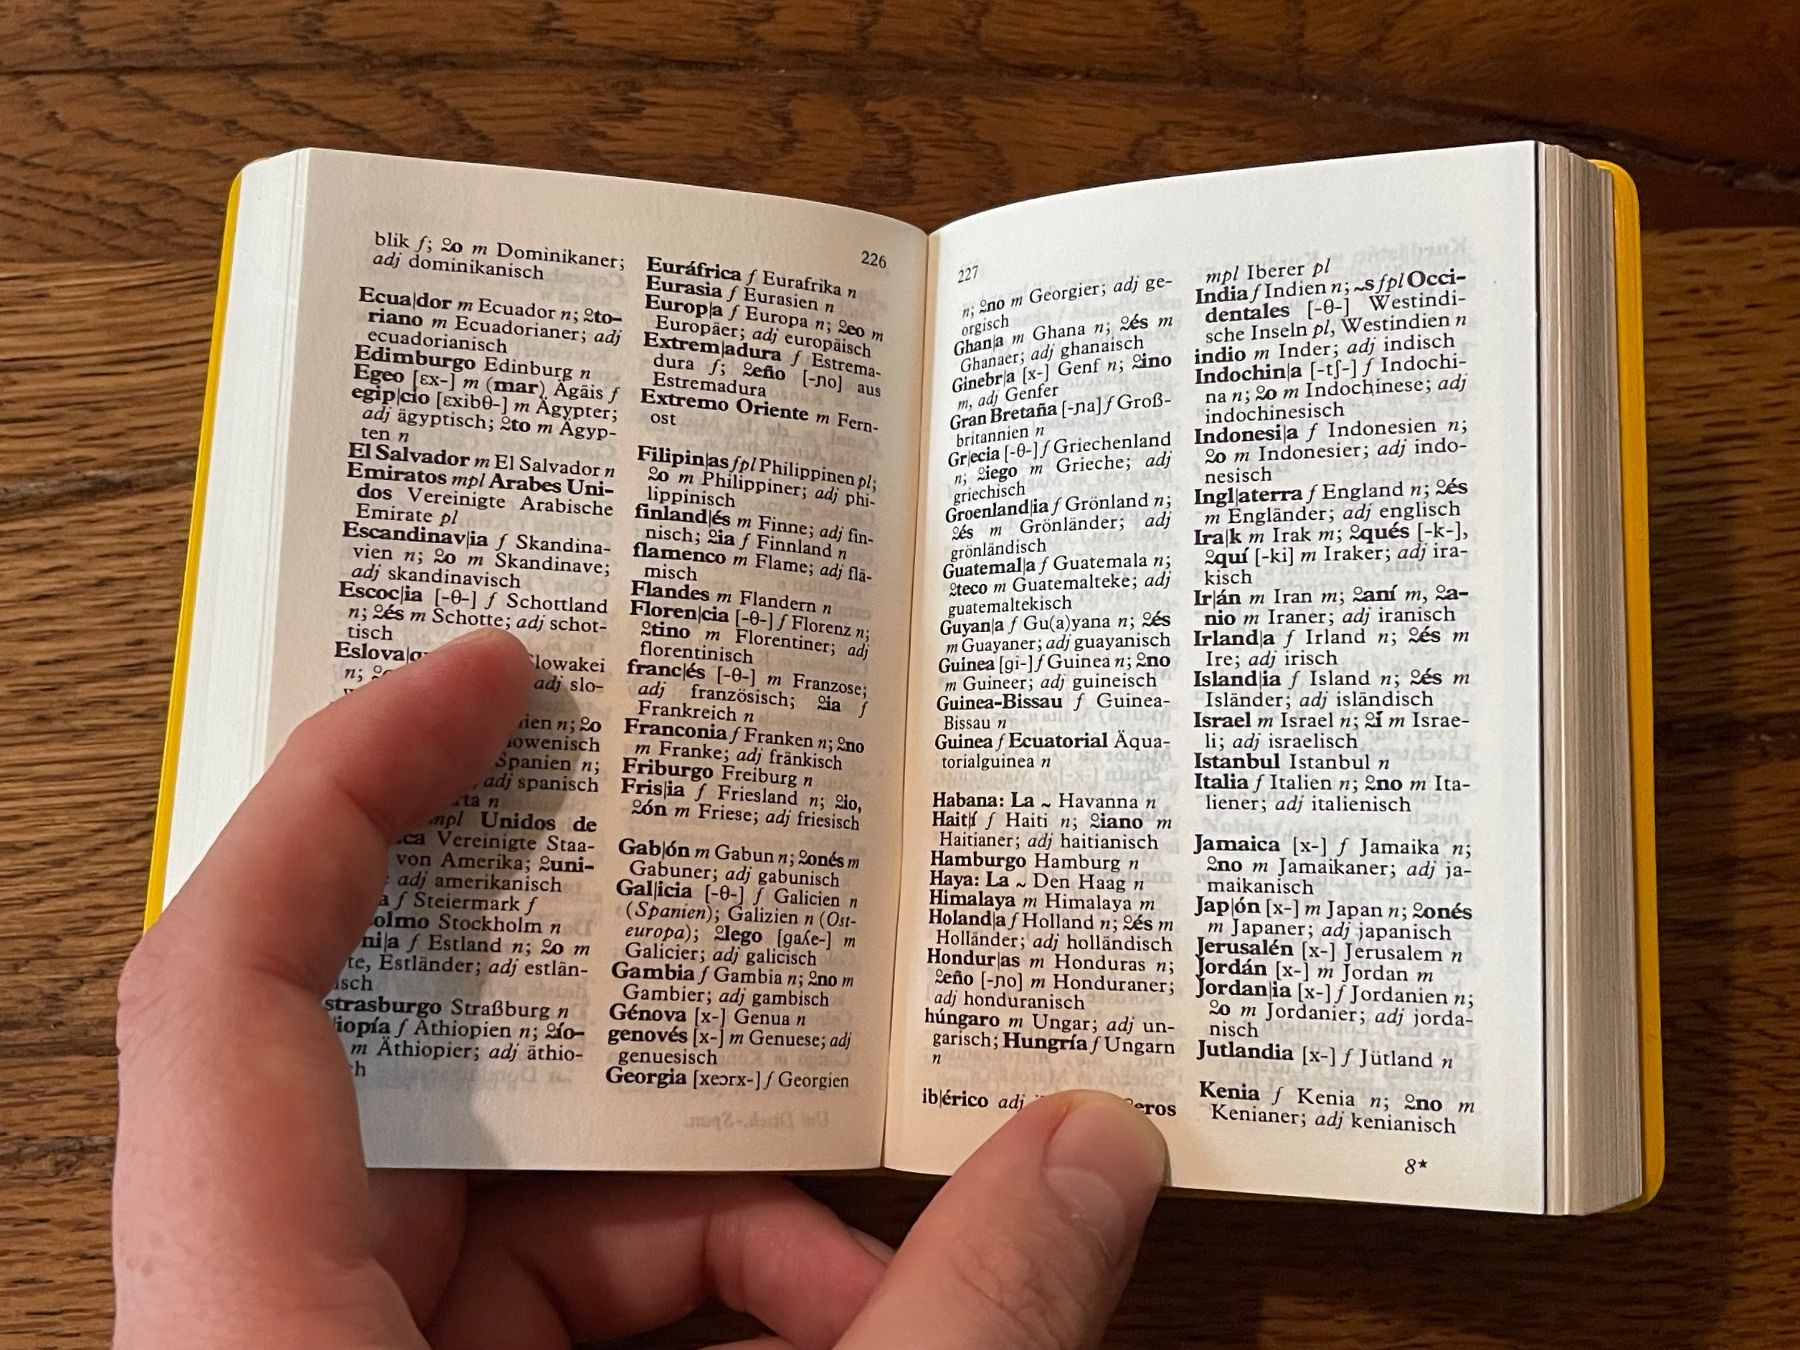 226
blik f; ᘔo m Dominikaner;
adj dominikanisch
Ecua|dor m Ecuador n; ᘔto-
riano m Ecuadorianer; adj
ecuadorianisch
Edimburgo Edinburg n
Egeo [ɛx-] m (mar) Ägäis f
egip|cio [ɛxibθ-] m Ägypter;
adj ägyptisch; ᘔto m Ägyp-
ten n
El Salvador m El Salvador n
Emiratos mpl Arabes Uni-
dos Vereinigte Arabische
Emirate pl
Escandinav|ia f Skandina-
vien n; ᘔo m Skandinave;
adj skandinavisch
Escoc|ia [-θ-] f Schottland
n; ᘔés m Schotte; adj schot-
tisch
Slowakei
n; adj slo-
n; ᘔo
Spanien n;
adj spanisch
n
mpl Unidos de
Vereinigte Staa-
von Amerika; ᘔuni-
adj amerikanisch
f Steiermark f
Stockholm n
f Estland n; ᘔo m
Estländer; adj estlän-
strasburgo Straßburg n
f Äthiopien n; ᘔío-
m Äthiopier; adj äthio-
Euráfrica f Eurafrika n
Eurasia f Eurasien n
Europ|a f Europa n; ᘔeo m
Europäer; adj europäisch
Extrem|adura f Estrema-
dura f; ᘔeño [-ɲo] aus
Estremadura
Extremo Oriente m Fern-
ost
Filipin|as fpl Philippinen pl;
ᘔo m Philippiner; adj phi-
lippinisch
finland|és m Finne; adj fin-
nisch; ᘔia f Finnland n
flamenco m Flame; adj flä-
misch
Flandes m Flandern n
Floren|cia [-θ-] f Florenz n;
ᘔtino m Florentiner; adj
florentinisch
franc|és [-θ-] m Franzose;
adj französisch; ᘔia f
Frankreich n
Franconia f Franken n; ᘔno
m Franke; adj fränkisch
Friburgo Freiburg n
Fris|ia f Friesland n; ᘔio,
ᘔón m Friese; adj friesisch
Gab|ón m Gabun n; ᘔonés m
Gabuner; adj gabunisch
Gal|icia [-θ-] f Galicien n
(Spanien); Galizien n (Ost-
europa); ᘔlego [gaʎe-] m
Galicier; adj galicisch
Gambia f Gambia n; ᘔno m
Gambier; adj gambisch
Génova [x-] Genua n
genovés [x-] m Genuese; adj
genuesisch
Georgia [xeɔrx-] f Georgien
227
n; ᘔno m Georgier; adj ge-
orgisch
Ghan|a m Ghana n; ᘔés m
Ghanaer; adj ghanaisch
Ginebr|a [x-] Genf n; ᘔino
m, adj Genfer
Gran Bretaña [-ɲa] f Groß-
britannien n
Gr|ecia [-θ-] f Griechenland
n; ᘔiego m Grieche; adj
griechisch
Groenland|ia f Grönland n;
ᘔés m Grönländer; adj
grönländisch
Guatemal|a f Guatemala n;
ᘔteco m Guatemalteke; adj
guatemaltekisch
Guyan|a f Gu(a)yana n; ᘔés
m Guayaner; adj guayanisch
Guinea [gi-] f Guinea n; ᘔno
m Guineer; adj guineisch
Guinea-Bissau f Guinea-
Bissau n
Guinea f Ecuatorial Äqua-
torialguinea n
Habana: La ~ Havanna n
Hait|í f Haiti n; ᘔiano m
Haitianer; adj haitianisch
Hamburgo Hamburg n
Haya: La ~ Den Haag n
Himalaya m Himalaya m
Holand|a f Holland n; ᘔés m
Holländer; adj holländisch
Hondur|as m Honduras n;
ᘔeño [-ɲo] m Honduraner;
adj honduranisch
húngaro m Ungar; adj un-
garisch; Hungría f Ungarn
n
ib|érico adj
mpl Iberer pl
India f Indien n; ~s fpl Occi-
dentales [-θ-] Westindi-
sche Inseln pl, Westindien n
indio m Inder; adj indisch
Indochin|a [-tʃ-] f Indochi-
na n; ᘔo m Indochinese; adj
indochinesisch
Indonesi|a f Indonesien n;
ᘔo m Indonesier; adj indo-
nesisch
Ingl|aterra f England n; ᘔés
m Engländer; adj englisch
Ira|k m Irak m; ᘔqués [-k-],
ᘔquí [-ki] m Iraker; adj ira-
kisch
Ir|án m Iran m; ᘔaní m, ᘔa-
nio m Iraner; adj iranisch
Irland|a f Irland n; ᘔés m
Ire; adj irisch
Island|ia f Island n; ᘔés m
Isländer; adj isländisch
Israel m Israel n; ᘔí m Israe-
li; adj israelisch
Istanbul Istanbul n
Italia f Italien n; ᘔno m Ita-
liener; adj italienisch
Jamaica [x-] f Jamaika n;
ᘔno m Jamaikaner; adj ja-
maikanisch
Jap|ón [x-] m Japan n; ᘔonés
m Japaner; adj japanisch
Jerusalén [x-] Jerusalem n
Jordán [x-] m Jordan m
Jordan|ia [x-] f Jordanien n;
ᘔo m Jordanier; adj jorda-
nisch
Jutlandia [x-] f Jütland n
Kenia f Kenia n; ᘔno m
Kenianer; adj kenianisch
8*